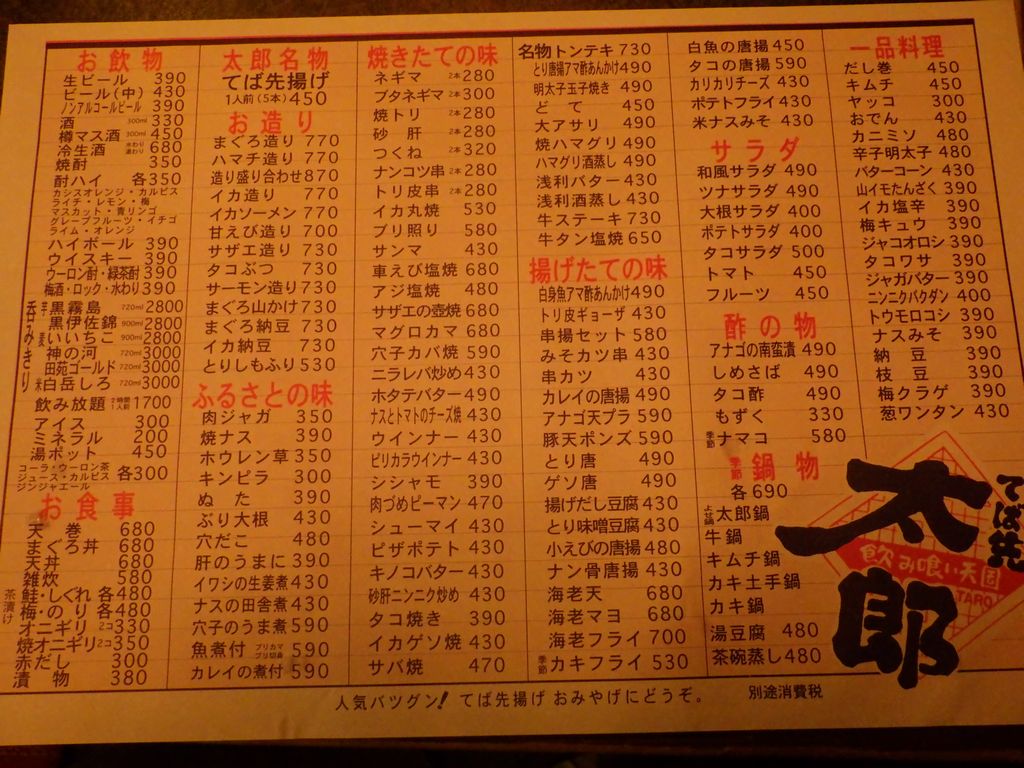 お飲物
生ビール 390
ビール(中) 430
ノンアルコールビール 390
酒 300ml 330
樽マス酒 300ml 450
冷生酒 680
焼酎 350
酎ハイ 各350
カシスオレンジ・カルピス
ライチ・レモン・梅
マスカット・青リンゴ
グレープフルーツ・イチゴ
ライム・オレンジ
ハイボール 390
ウイスキー 390
ウーロン酎・緑茶酎 390
梅酒・ロック・水わり 390
呑みきり
芋 黒霧島 720ml 2800
黒伊佐錦 900ml 2800
麦 いいちこ 900ml 2800
神の河 720ml 3000
田苑ゴールド 720ml 3000
米 白岳しろ 720ml 3000
飲み放題 2時間1人前 1700
アイス 300
ミネラル 200
湯ポット 450
コーラ・ウーロン茶
ジュース・カルピス 各300
ジンジャエール
お食事
天巻 680
まぐろ丼 680
天丼 680
雑炊 580
茶漬け
鮭・しぐれ 各480
梅・のり 各480
オニギリ 2コ 330
焼オニギリ 2コ 350
赤だし 300
漬物 380
太郎名物
てば先揚げ
1人前(5本) 450
お造り
まぐろ造り 770
ハマチ造り 770
造り盛り合わせ 870
イカ造り 770
イカソーメン 770
甘えび造り 700
サザエ造り 730
タコぶつ 730
サーモン造り 730
まぐろ山かけ 730
まぐろ納豆 730
イカ納豆 730
とりしもふり 530
ふるさとの味
肉ジャガ 350
焼ナス 390
ホウレン草 350
キンピラ 300
ぬた 390
ぶり大根 430
穴だこ 480
肝のうまに 390
イワシの生姜煮 430
ナスの田舎煮 430
穴子のうま煮 590
魚煮付 ブリカマ ブリ切身 590
カレイの煮付 590
焼きたての味
ネギマ 2本 280
ブタネギマ 2本 300
焼トリ 2本 280
砂肝 2本 280
つくね 2本 320
ナンコツ串 2本 280
トリ皮串 2本 280
イカ丸焼 530
ブリ照り 580
サンマ 430
車えび塩焼 680
アジ塩焼 480
サザエの壺焼 680
マグロカマ 680
穴子カバ焼 590
ニラレバ炒め 430
ホタテバター 490
ナスとトマトのチーズ焼 430
ウインナー 430
ピリカラウインナー 430
シシャモ 390
肉づめピーマン 470
シューマイ 430
ピザポテト 430
キノコバター 430
砂肝ニンニク炒め 430
タコ焼き 390
イカゲソ焼 430
サバ焼 470
名物トンテキ 730
とり唐揚アマ酢あんかけ 490
明太子玉子焼き 490
どて 450
大アサリ 490
焼ハマグリ 490
ハマグリ酒蒸し 490
浅利バター 430
浅利酒蒸し 430
牛ステーキ 730
牛タン塩焼 650
揚げたての味
白身魚アマ酢あんかけ 490
トリ皮ギョーザ 430
串揚セット 580
みそカツ串 430
串カツ 430
カレイの唐揚 490
アナゴ天プラ 590
豚天ポンズ 590
とり唐 490
ゲソ唐 490
揚げだし豆腐 430
とり味噌豆腐 430
小えびの唐揚 480
ナン骨唐揚 430
海老天 680
海老マヨ 680
海老フライ 700
季節 カキフライ 530
白魚の唐揚 450
タコの唐揚 590
カリカリチーズ 430
ポテトフライ 430
米ナスみそ 430
サラダ
和風サラダ 490
ツナサラダ 490
大根サラダ 400
ポテトサラダ 400
タコサラダ 500
トマト 450
フルーツ 450
酢の物
アナゴの南蛮漬 490
しめさば 490
タコ酢 490
もずく 330
季節 ナマコ 580
季節 鍋物
各690
よせ鍋 太郎鍋
牛鍋
キムチ鍋
カキ土手鍋
カキ鍋
湯豆腐 480
茶碗蒸し 480
一品料理
だし巻 450
キムチ 450
ヤッコ 300
おでん 430
カニミソ 480
辛子明太子 480
バターコーン 430
山イモたんざく 390
イカ塩辛 390
梅キュウ 390
ジャコオロシ 390
タコワサ 390
ジャガバター 390
ニンニクバクダン 400
トウモロコシ 390
ナスみそ 390
納豆 390
枝豆 390
梅クラゲ 390
葱ワンタン 430
てば先
太郎
飲み喰い天国
TARO
人気バツグン! てば先揚げ おみやげにどうぞ。
別途消費税